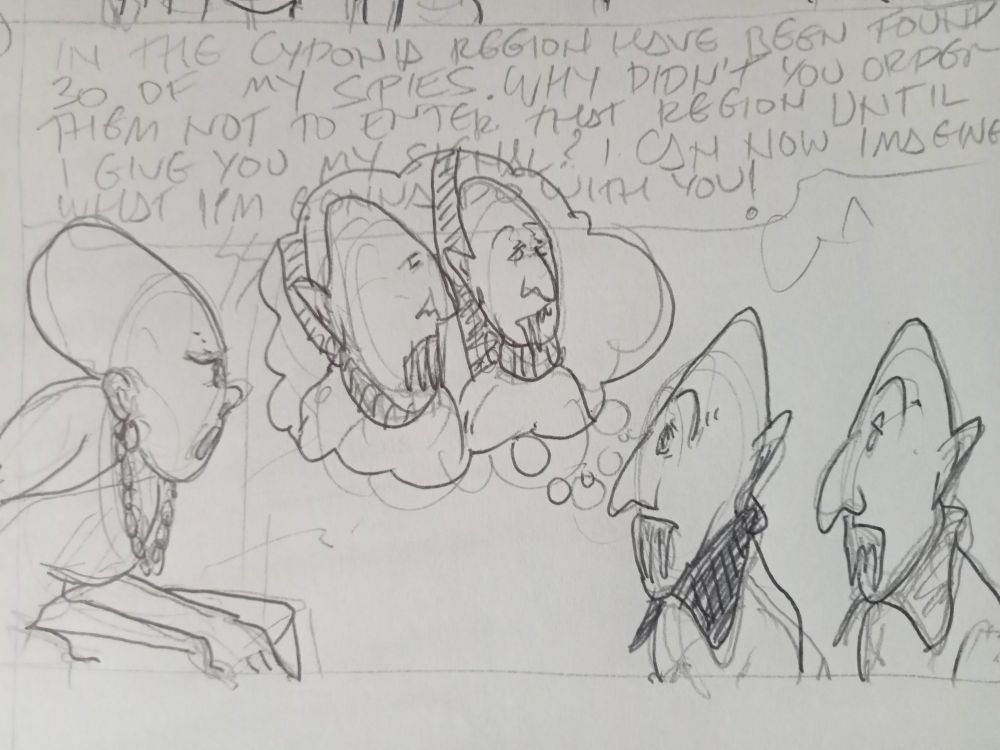 IN THE CYDONIA REGION HAVE BEEN FOUND
30 OF MY SPIES. WHY DIDN'T YOU ORDER
THEM NOT TO ENTER THAT REGION UNTIL
I GIVE YOU MY SIGNAL? I CAN NOW IMAGINE
WHAT I'M GONNA DO WITH YOU!